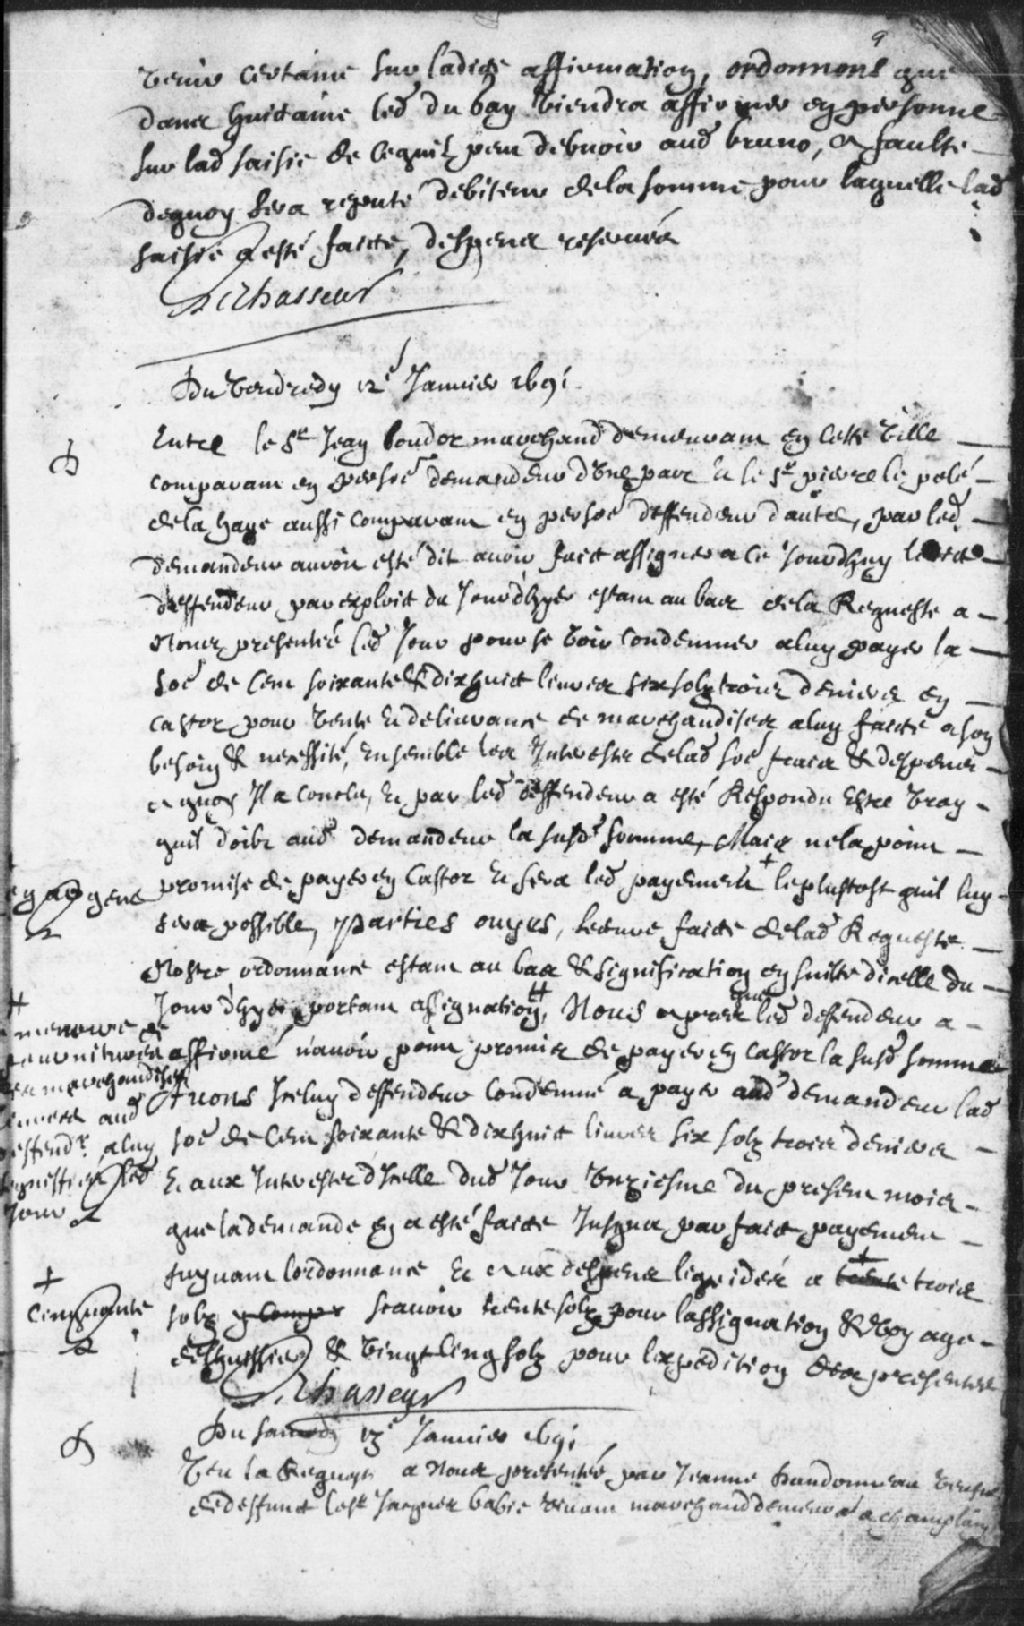 9
venir certaine sur ladite affirmation, ordonnons que
dans huictaine led du bay viendra affirmer en personne
sur lad saisie de ce quil peut debvoir aud bruno, & faulte
dequoy sera reputé debiteur de la somme pour laquelle lad
saisie a esté faicte, despens reservés
Lechasseur
Du vendredy 12e Janvier 1691
Entre le Sr Jean boudor marchand demeurant en cette ville
comparant en persoe demandeur d'une part et le Sr pierre le pelé
de la haye aussi comparant en persoe deffendeur dautre, par led
demandeur auroit esté dit avoir faict assigner a ce jourdhuy ledit
deffendeur par exploit du jour dhyer estant au bas de la Requeste a
Nous presentée led jour pour se voir condemner a luy payer la
soe de cent soixante & dixhuict livres six solz trois deniers en
castor pour vente et delivrance de marchandises a luy faicte a son
besoin & necessité, Ensemble les Interests de lad soe frais & despens
a quoy Il a conclu, Et par led deffendeur a esté Respondu Estre vray
quil doibt aud demandeur la susde somme, Mais ne la point
promise de payer en Castor Et sera led payement + le plustost quil luy
sera possible, Parties ouyes, lecture faicte de lad Requeste
Nostre ordonnance estant au bas & signification en suitte dicelle du
jour dhyer portant assignation, # Nous apres que led deffendeur a
affirmé n'avoir point promis de payer en castor la susd somme
Avons Iceluy deffendeur Condemné a payer aud demandeur lad
soe de Cent soixante & dixhuict livres six solz trois deniers
Et aux Interests d'Icelle dud jour unziesme du present mois
que la demande en a esté faicte Jusqua parfaict payement
suyvant lordonnance Et aux despens liquidés a + trente trois
solz y compr scavoir trente solz pour lassignation & voyage
de lhuissier & vingt cinq solz pour lexpedition des presentes
Lechasseur
+
cinquante
#
memoire de
fournitures
des marchandises
livrées aud
deffendr. a luy
signiffiée led
jour
en argent
Du samedy 13e Janvier 1691
Veu la Requeste a Nous presentée par Jeanne Dandonneau veufve
de deffunct le Sr Jacques babie vivant marchand demeurt a champlain